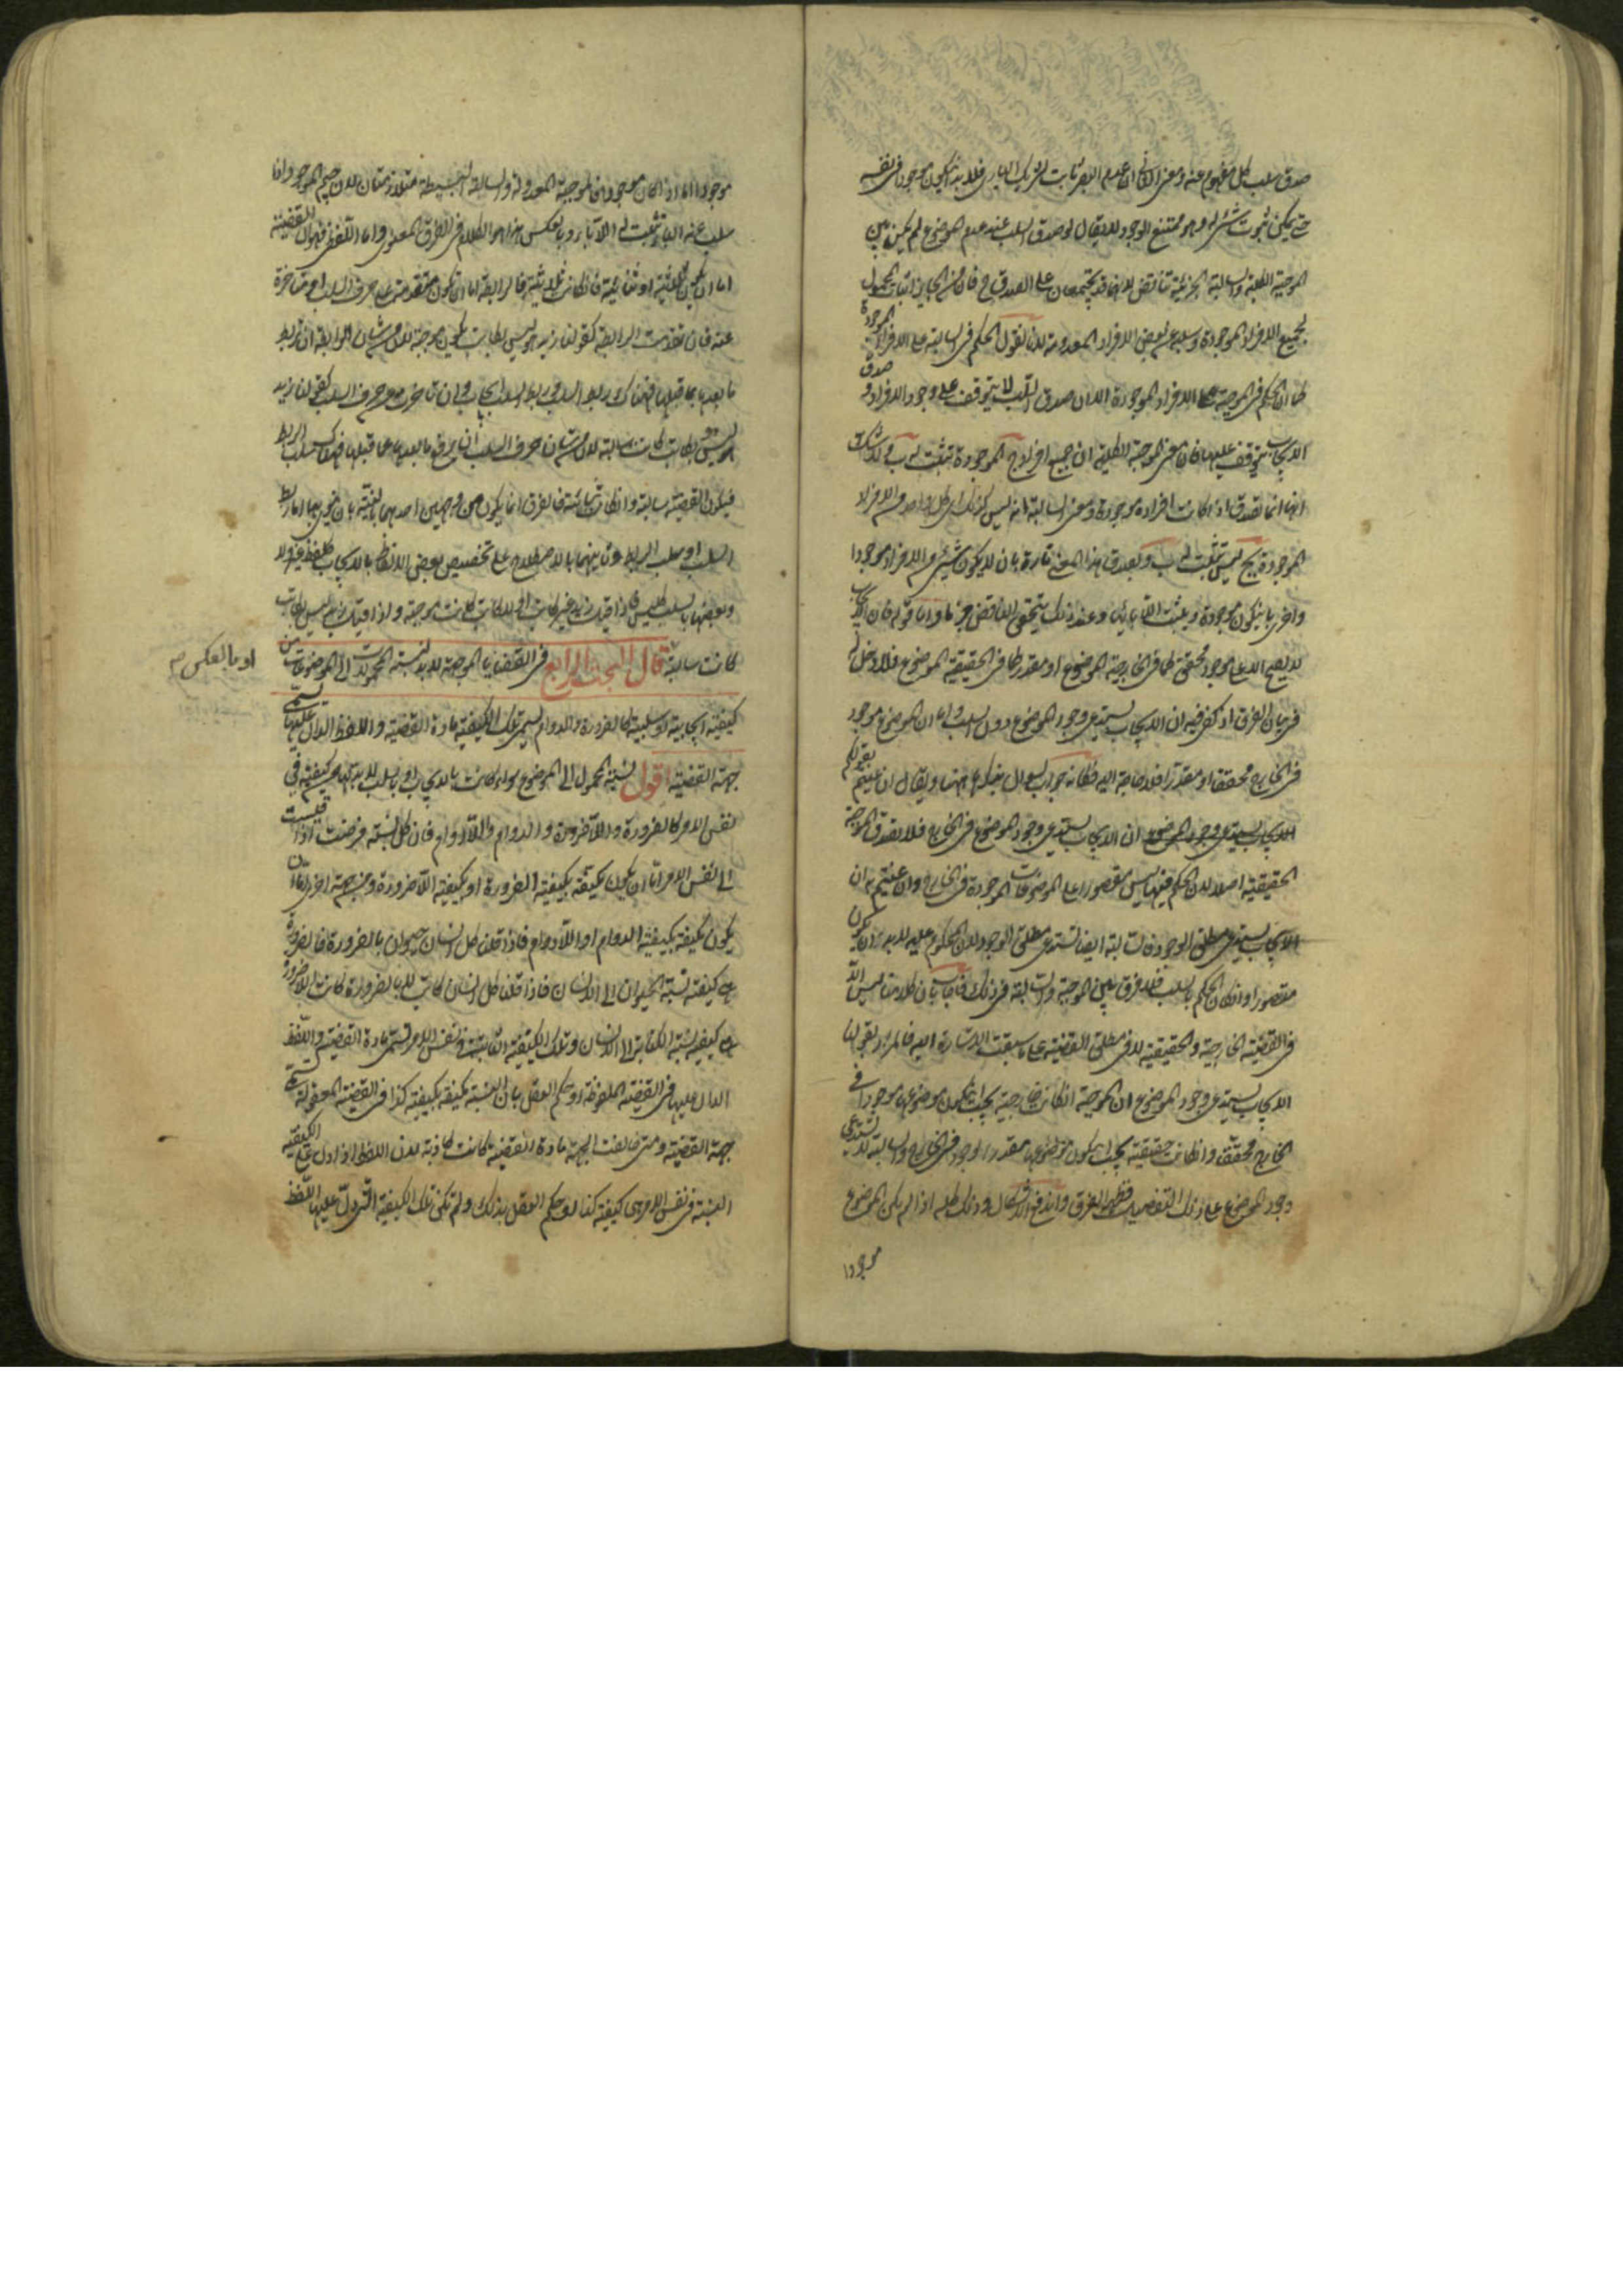 صدق سلب كل مفهوم عنه ومعنى الثاني ان عدم البصر ثابت لشريك الباري فلا بد ان يكون موجودا في نفسه
حتى يمكن ثبوت شيء له وهو ممتنع الوجود لا يقال لو صدق السلب عند عدم الموضوع لم يكن بين
الموجبة الكلية والسالبة الجزئية تناقض لانهما قد يجتمعان على الصدق ح فان من الجايز اثبات المحمول
لجميع الافراد الموجودة وسلبه عن بعض الافراد المعدومة لانا نقول الحكم في السالبة على الافراد الموجودة
كما ان الحكم في الموجبة على الافراد الموجودة الا ان صدق السلب لا يتوقف على وجود الافراد و صدق
الايجاب يتوقف عليها فان معنى الموجبة الكلية ان جميع افراد ج الموجودة تثبت له ب ولا شك
انها انما تصدق اذا كانت افراده موجودة ومعنى السالبة انه ليس كذلك اي كل واحد من الافراد
الموجودة لج ليس يثبت له ب ويصدق هذا المعنى تارة بان لا يكون شيء من الافراد موجودا
واخرى بان يكون موجودة ويثبت اللاباء لها وعند ذلك يتحقق التناقض جزما واما قوله فان الايجاب
لا يصح الا على موجود محقق كما في الخارجية الموضوع او مقدر كما في الحقيقية الموضوع فلا دخل له
في بيان الفرق اذ يكفي فيه ان الايجاب يستدعي وجود الموضوع دون السلب واما ان الموضوع موجود
في الخارج محققا او مقدرا فلا حاجة اليه فكانه جواب سؤال يذكر ههنا ويقال ان عنيتم بقولكم
الايجاب يستدعي وجود الموضوع ان الايجاب يستدعي وجود الموضوع في الخارج فلا يصدق الموجبة
الحقيقية اصلا لان الحكم فيها ليس مقصورا على الموضوعات الموجودة في الخارج وان عنيتم به ان
الايجاب يستدعي مطلق الوجود فالسالبة ايضا تستدعي مطلق الوجود لان المحكوم عليه لا بد ان يكون
متصورا وان كان الحكم بالسلب فلا فرق بين الموجبة والسالبة في ذلك فاجاب بان كلامنا ليس الا
في القضية الخارجية والحقيقية لا في مطلق القضية على ما سبقت الاشارة اليه فالمراد بقولنا
الايجاب يستدعي وجود الموضوع ان الموجبة ان كانت خارجية يجب ان يكون موضوعها موجودا في
الخارج محققا وان كانت حقيقية يجب ان يكون موضوعها مقدر الوجود في الخارج والسالبة لا يستدعي
وجود الموضوع على ذلك التفصيل فظهر الفرق واندفع الاشكال وذلك كله اذا لم يكن الموضوع
موجودا
موجودا اما اذا كان موجودا فالموجبة المعدولة والسالبة البسيطة متلازمتان لان ج الموجود اذا
سلب عنه الباء يثبت له اللاباء وبالعكس هذا هو الكلام في الفرق المعنوي واما اللفظي فهو ان القضية
اما ان يكون ثلاثية او ثنائية فان كانت ثلاثية فالرابطة اما ان يكون متقدمة على حرف السلب او متاخرة
عنه فان تقدمت الرابطة كقولنا زيد هو ليس بكاتب يكون موجبة لان من شان الرابطة ان تربط
ما بعدها بما قبلها فهناك ربط السلب وربط السلب ايجاب وان تاخرت من حرف السلب كقولنا زيد
ليس هو بكاتب كانت سالبة لان من شان حرف السلب ان يرفع ما بعدها عما قبلها فهناك سلب الربط
فيكون القضية سالبة وان كانت ثنائية فالفرق انما يكون من وجهين احدهما بالنية بان ينوى بها اما ربط
السلب او سلب الربط وثانيهما بالاصطلاح على تخصيص بعض الالفاظ بالايجاب كلفظ غير ولا
وبعضها بالسلب كليس فاذا قيل زيد غير كاتب او لا كاتب كانت موجبة واذا قيل زيد ليس بكاتب
كانت سالبة قال البحث الرابع في القضايا الموجهة لا بد لنسبة المحمولات الى الموضوعات من
او بالعكس صح
كيفية ايجابية او سلبية كالضرورة والدوام تسمى تلك الكيفية مادة القضية واللفظ الدال عليها تسمى
جهة القضية اقول نسبة المحمول الى الموضوع سواء كانت بالايجاب او بالسلب لا بد لها من كيفية في
نفس الامر كالضرورة واللاضرورة والدوام واللادوام فان كل نسبة فرضت اذا قيست
الى نفس الامر اما ان يكون مكيفة بكيفية الضرورة او بكيفية اللاضرورة ومن جهة اخرى اما ان
يكون مكيفة بكيفية الدوام او اللادوام فاذا قلنا كل انسان حيوان بالضرورة فالضرورة
هي كيفية نسبة الحيوان الى الانسان فاذا قلنا كل انسان كاتب لا بالضرورة كانت اللاضرورة
هي كيفية نسبة الكتابة الى الانسان وتلك الكيفية الثابتة في نفس الامر تسمى مادة القضية واللفظ
الدال عليها في القضية الملفوظة او حكم العقل بان النسبة مكيفة بكيفية كذا في القضية المعقولة تسمى
جهة القضية ومتى خالفت الجهة مادة القضية كانت كاذبة لان اللفظ اذا دل على ان كيفية
النسبة في نفس الامر هي كيفية كذا او حكم العقل بذلك ولم تكن تلك الكيفية التي دل عليها اللفظ